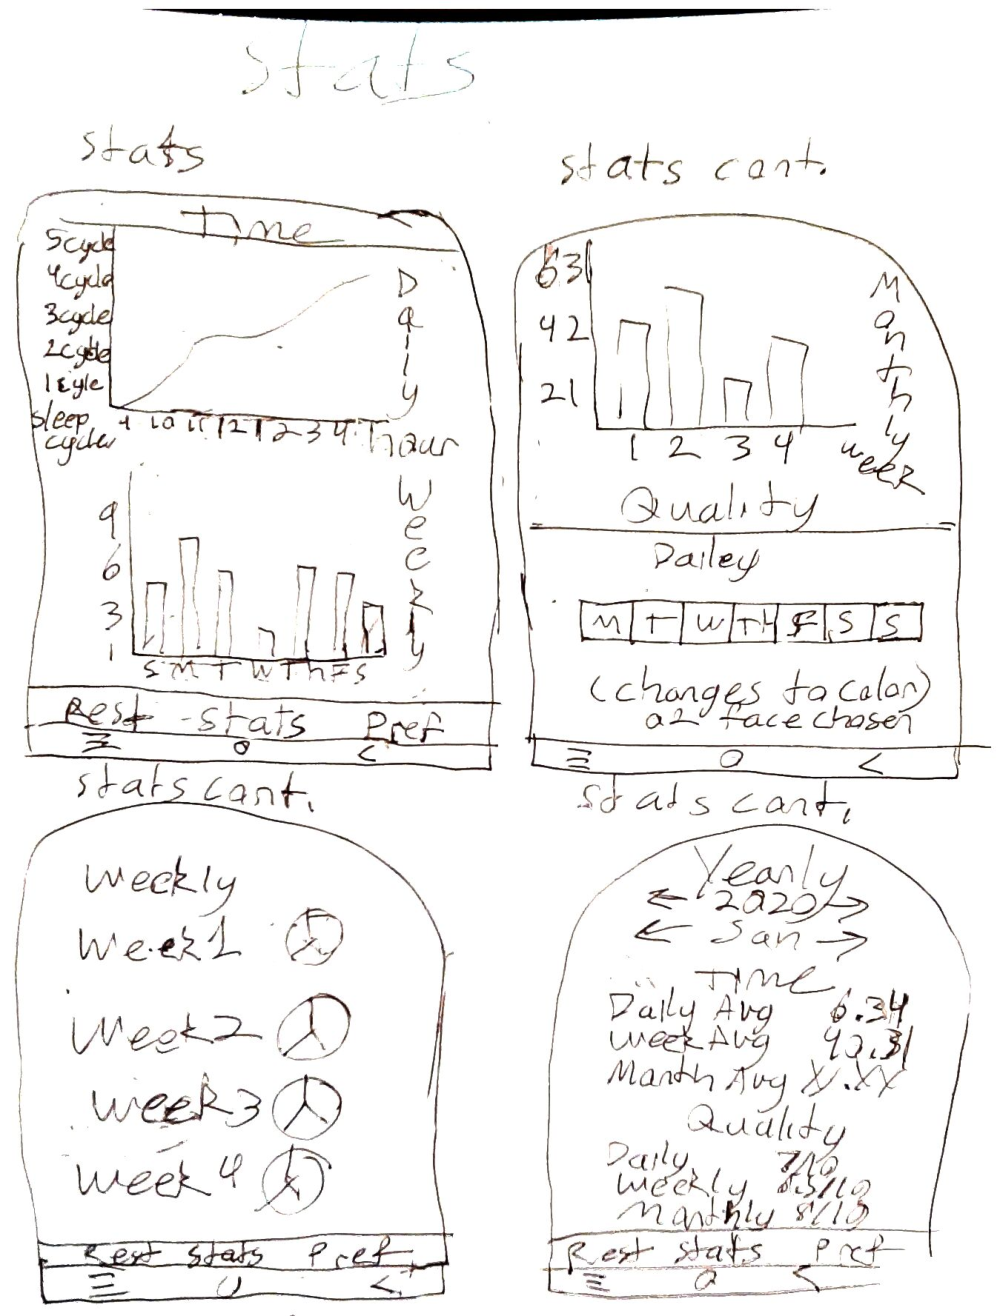 stats
stats
Time
5cycle
4cycle
3cycle
2cycle
1cycle
sleep
cycles
10 11 12 1 2 3 4
hour
Daily
9
6
3
1
S M T W Th F S
Weekly
Rest stats Pref
stats cont.
63
42
21
1 2 3 4
week
Monthly
Quality
Dailey
M T W TH F S S
(changes to color)
a2 face chosen
stats cont.
Weekly
Week1
Week2
Week3
Week4
Rest stats Pref
stats cont.
Yearly
← 2020 →
← Jan →
Time
Daily Avg 6.34
Week Avg 40.31
Month Avg XX.XX
Quality
Daily 7/10
Weekly 8.3/10
Monthly 8/10
Rest stats Pref